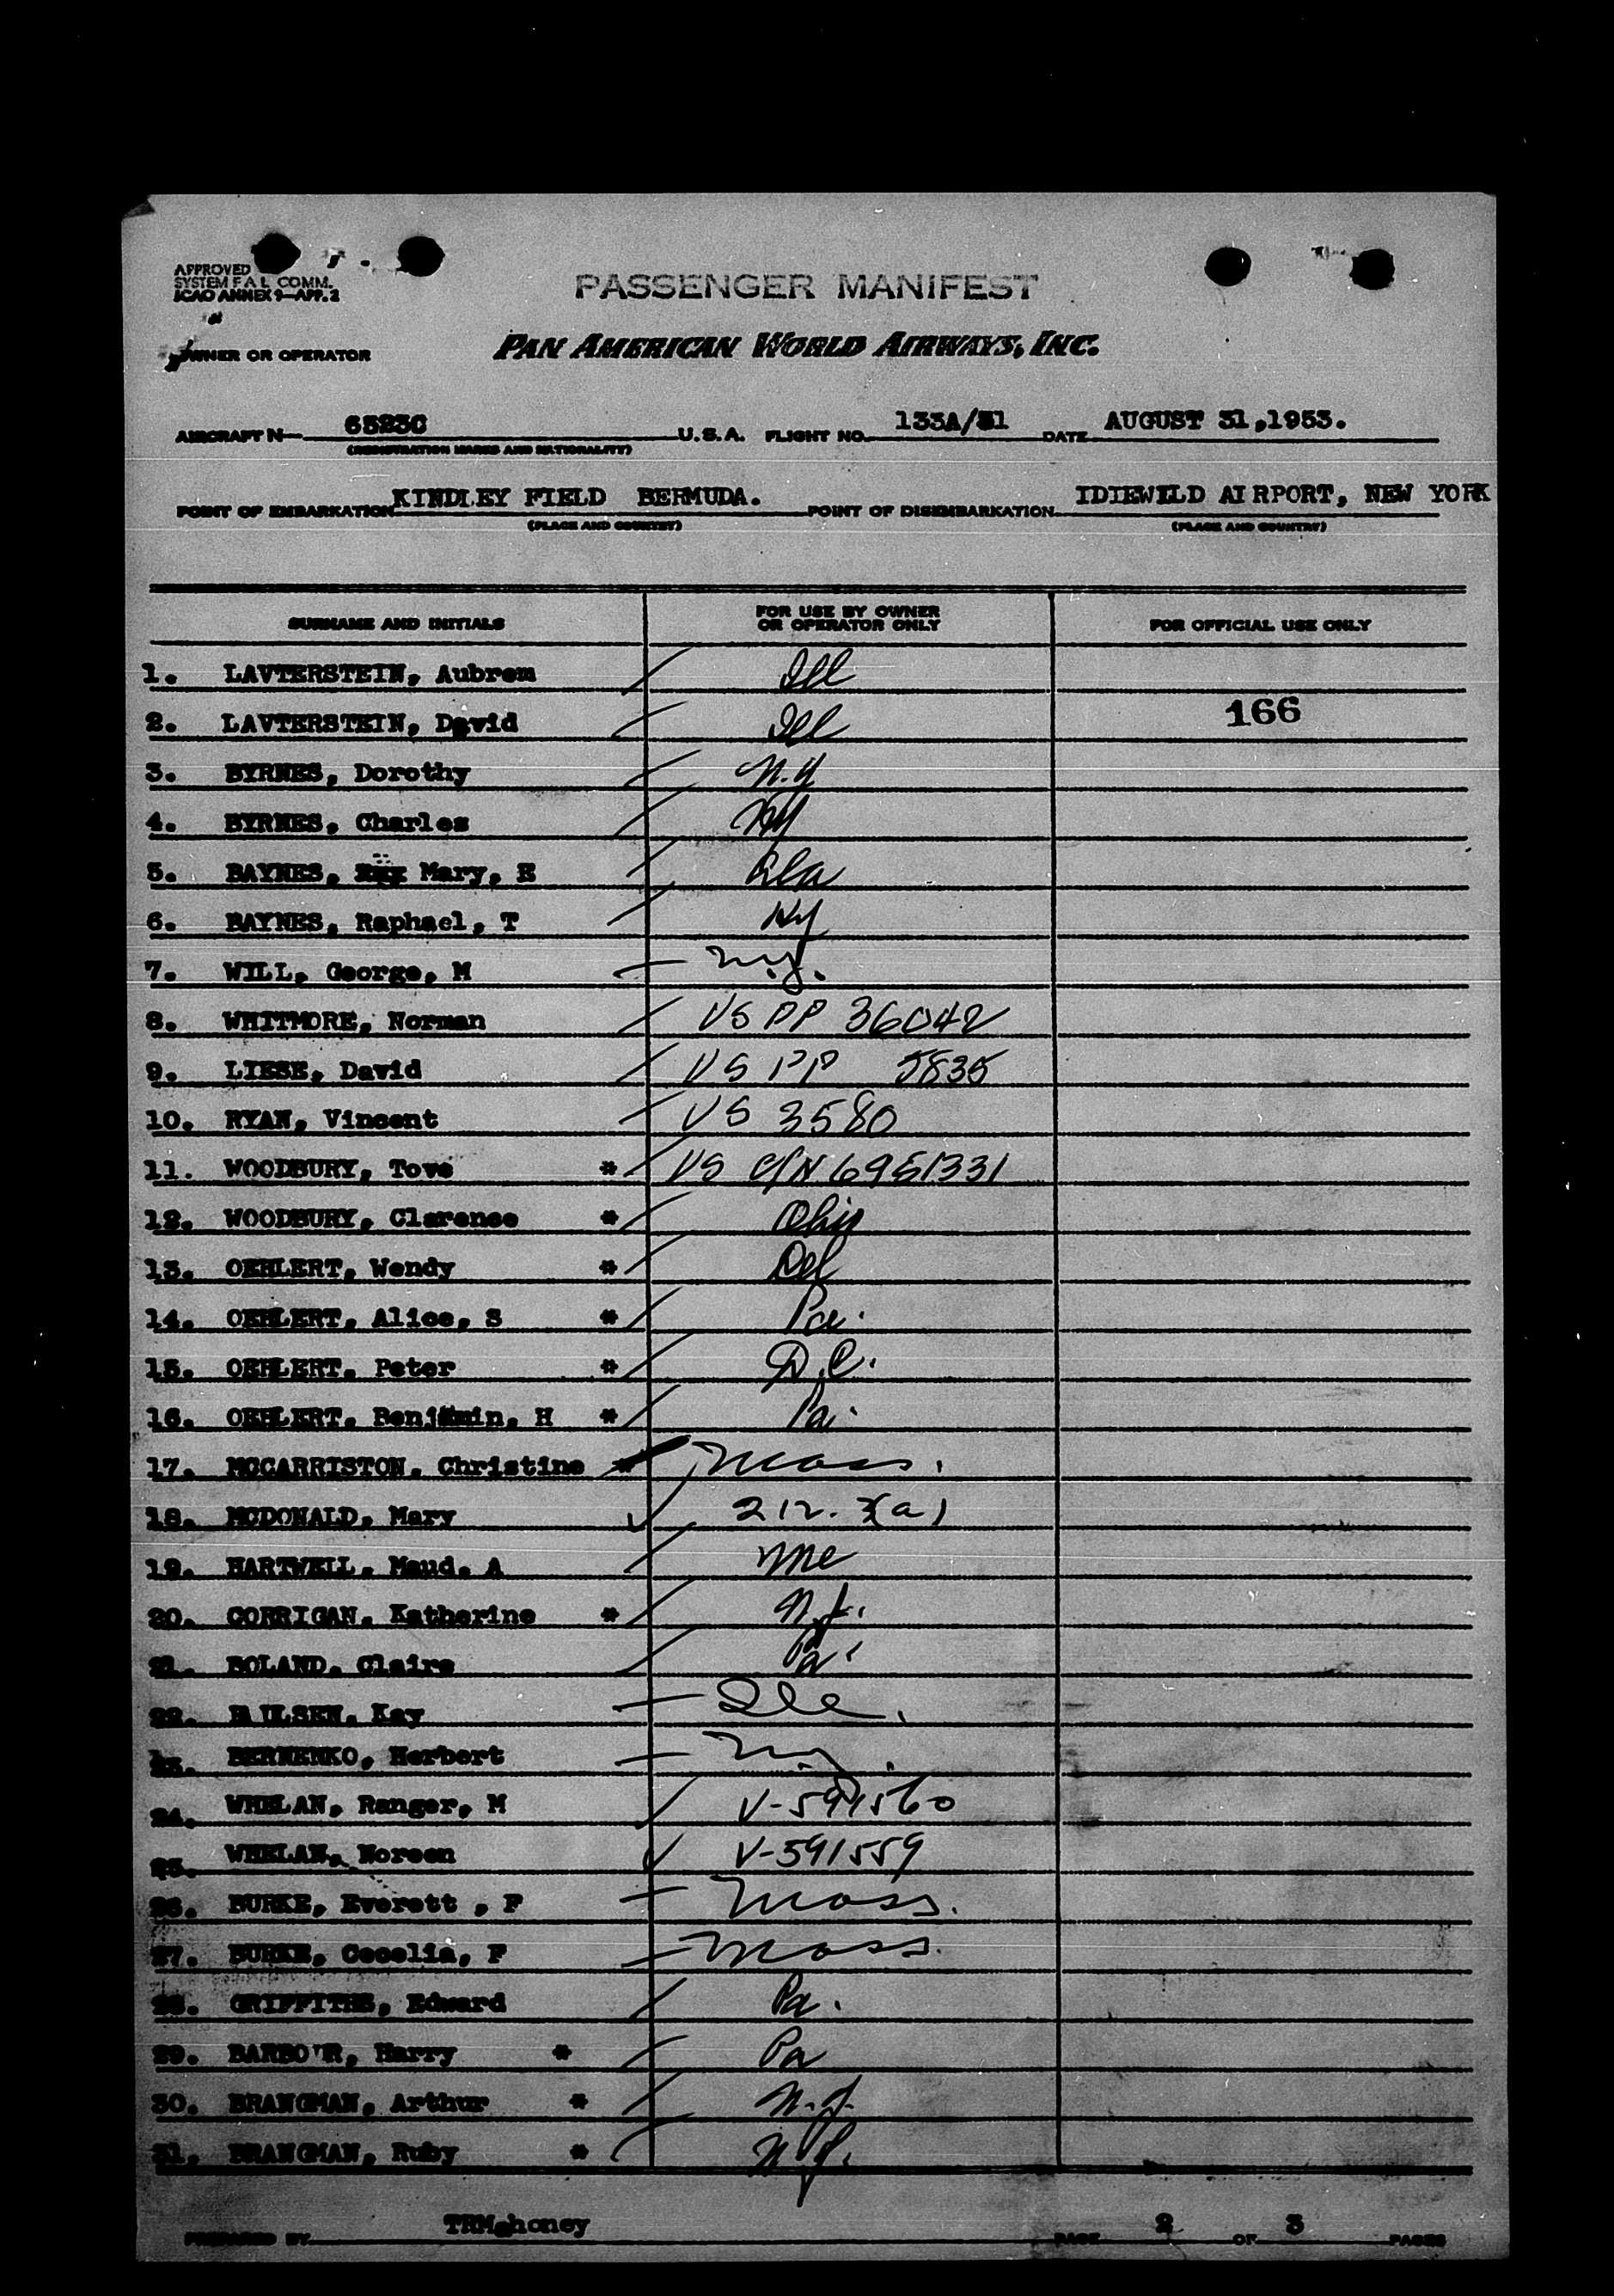 APPROVED
SYSTEM F A L COMM.
ICAO ANNEX 9—APP. 2
PASSENGER MANIFEST
OWNER OR OPERATOR PAN AMERICAN WORLD AIRWAYS, INC.
AIRCRAFT N 6523C U.S.A. FLIGHT NO. 133A/31 DATE AUGUST 31,1953.
(REGISTRATION MARKS AND NATIONALITY)
POINT OF EMBARKATION KINDLEY FIELD BERMUDA. POINT OF DISEMBARKATION IDIEWILD AIRPORT, NEW YORK
(PLACE AND COUNTRY) (PLACE AND COUNTRY)
SURNAME AND INITIALS FOR USE BY OWNER OR OPERATOR ONLY FOR OFFICIAL USE ONLY
1. LAVTERSTEIN, Aubrem Ill
2. LAVTERSTEIN, David Ill 166
3. BYRNES, Dorothy N.Y
4. BYRNES, Charles NY
5. BAYNES, Mary, E Ala
6. BAYNES, Raphael, T NY
7. WILL, George, M N.Y.
8. WHITMORE, Norman US PP 36042
9. LIESE, David US PP 5835
10. RYAN, Vincent US 3580
11. WOODBURY, Tove * US C/N 6951331
12. WOODBURY, Clarence * Ohio
13. OEHLERT, Wendy * Del
14. OEHLERT, Alice, S * Pa.
15. OEHLERT, Peter * D.C.
16. OEHLERT, Benjamin, H * Pa.
17. MCCARRISTON, Christine * Mass.
18. MCDONALD, Mary 212.3(a)
19. HARTWELL, Maud, A Me
20. CORRIGAN, Katherine * N.J.
21. BOLAND, Claire Pa.
22. Kay Ill.
23. BERNENKO, Herbert N.Y.
24. WHELAN, Ranger, M V-591560
25. WHELAN, Noreen V-591559
26. BURKE, Everett , F Mass.
27. BURKE, Cecelia, F Mass.
28. GRIFFITHS, Edward Pa.
29. BARBO'R, Harry * Pa
30. BRANGMAN, Arthur * N.J.
31. BRANGMAN, Ruby * N.J.
PREPARED BY TRMahoney PAGE 2 OF 3 PAGES